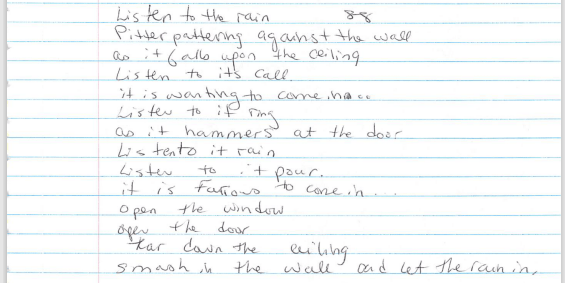 Listen to the rain 88
Pitter pattering against the wall
as it falls upon the ceiling
Listen to its call.
it is wanting to come in...
Listen to it ring
as it hammers at the door
Listen to it rain
Listen to it pour.
it is Farious to come in...
open the window
open the door
tear down the ceiling
smash in the wall and let the rain in.